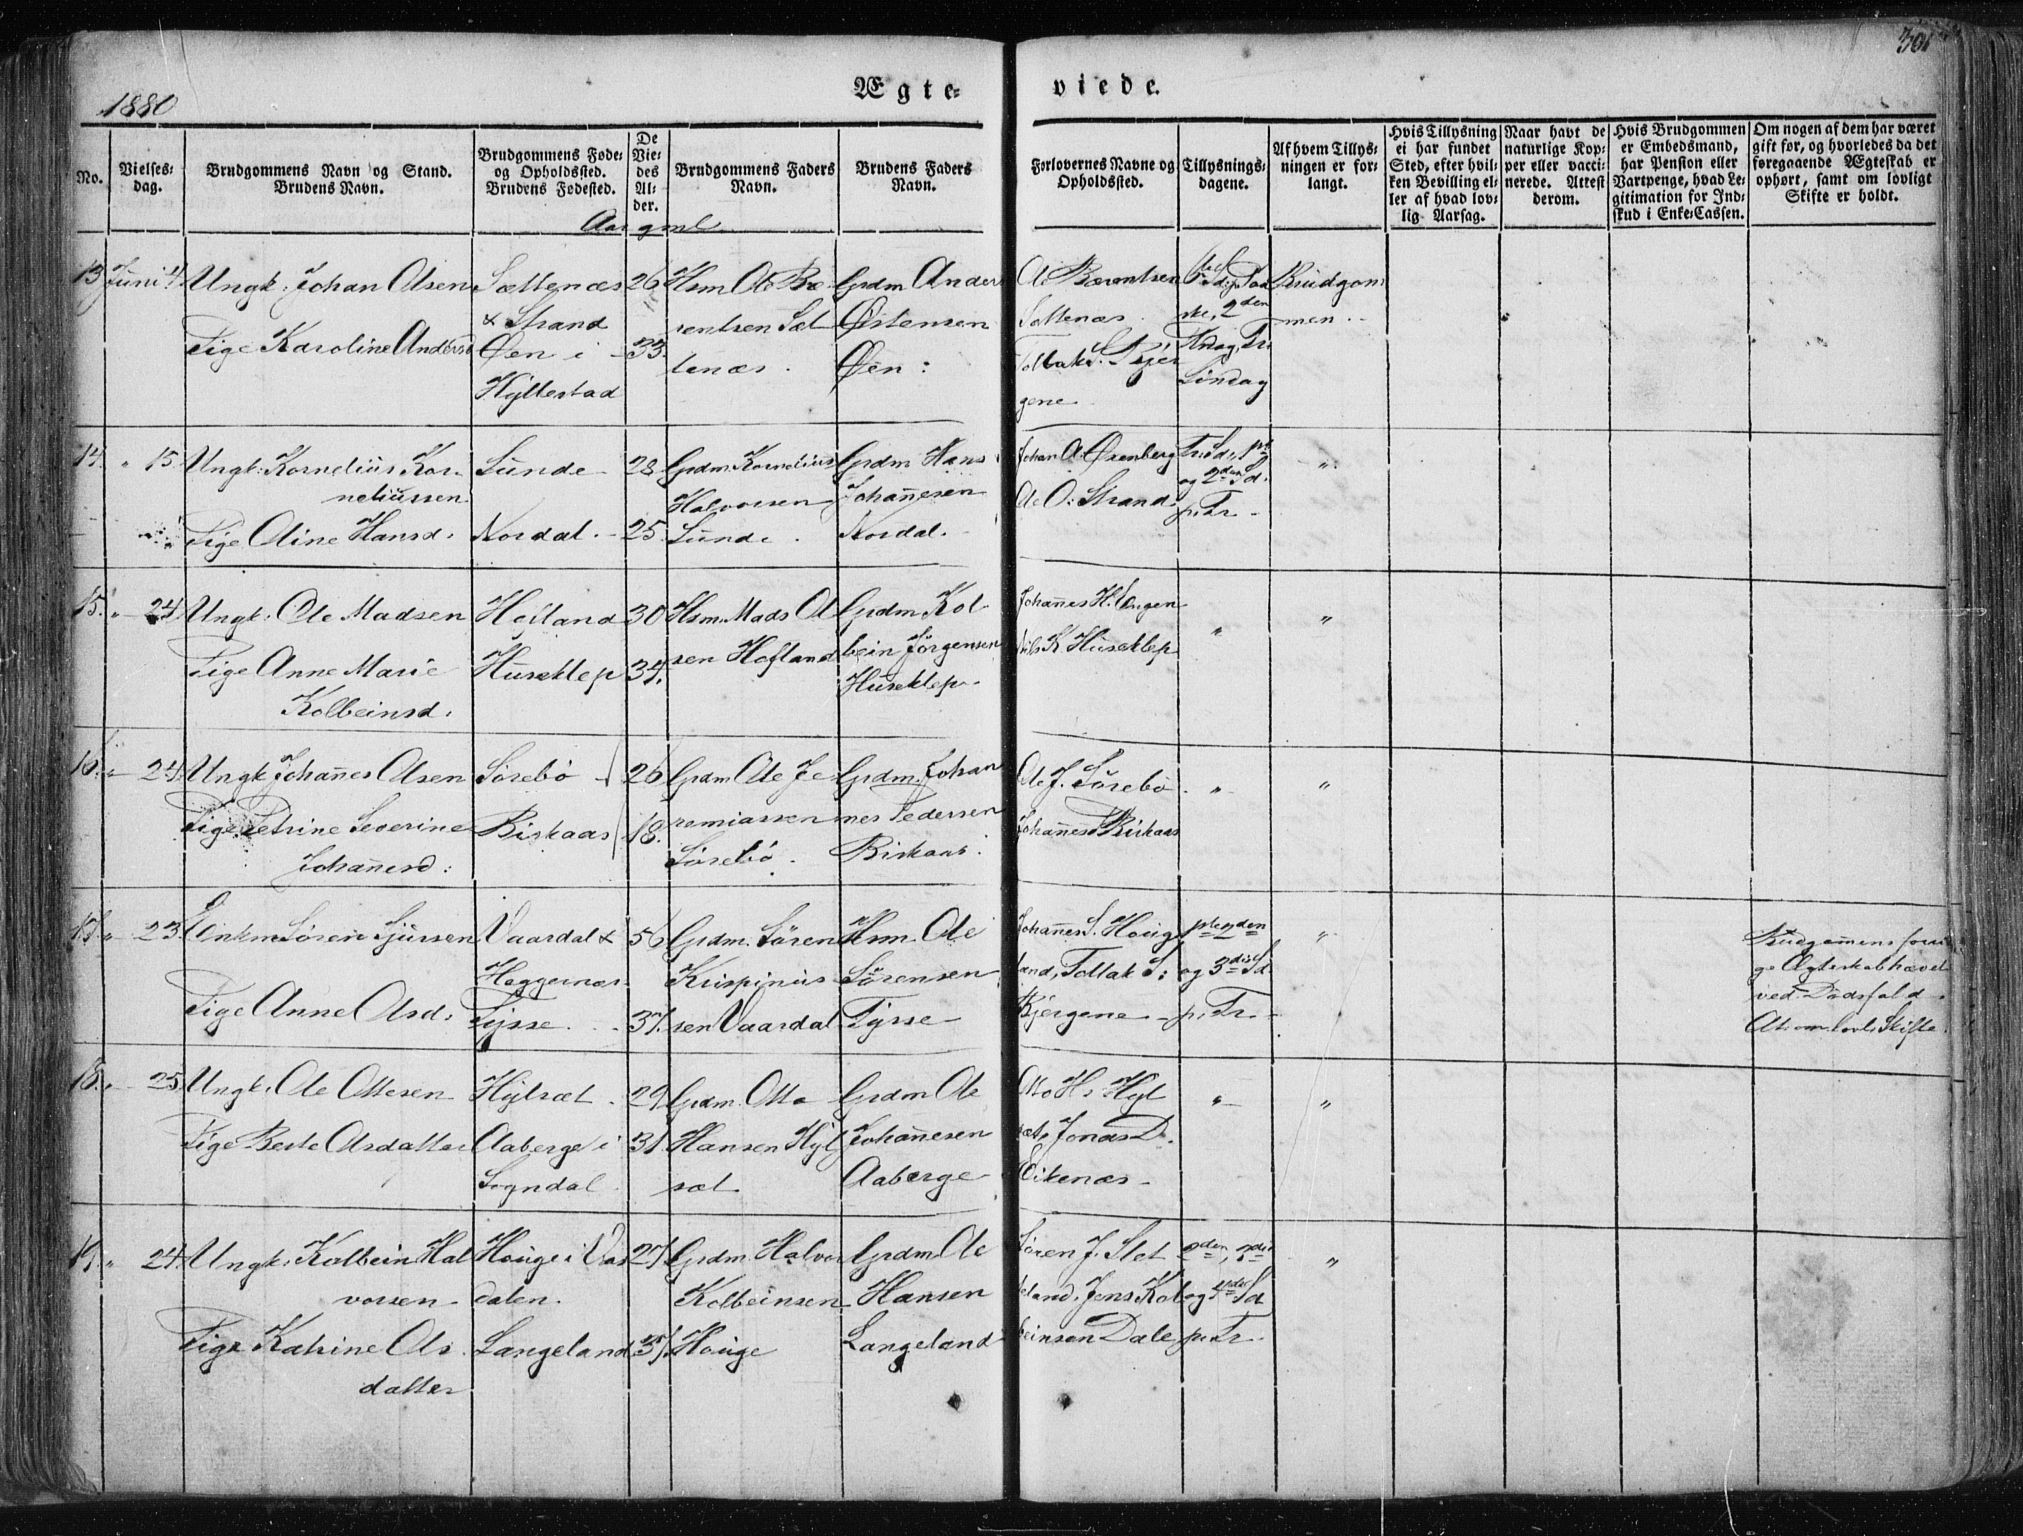 1880
Ægte-
viede.
301
No.
Vielses-
dag.
Brudgommens Navn og Stand.
Brudens Navn.
Brudgommens Føde-
og Opholdssted.
Brudens Fødested.
De
Vie-
des
Al-
der.
Brudgommens Faders
Navn.
Brudens Faders
Navn.
Forlovernes Navne og
Opholdssted.
Tillysnings-
dagene.
Af hvem Tillys-
ningen er for-
langt.
Hvis Tillysning
ei har fundet
Sted, efter hvil-
ken Bevilling el-
ler af hvad lov-
lig Aarsag.
Naar havt de
naturlige Kop-
per eller vacci-
nerede. Attest
derom.
Hvis Brudgommen
er Embedsmand,
har Pension eller
Vartpenge, hvad Le-
gitimation for Ind-
skud i Enke-Cassen.
Om nogen af dem har været
gift før, og hvorledes da det
foregaaende Ægteskab er
ophørt, samt om lovligt
Skifte er holdt.
Aar gml
13 Juni 4
Ungk: Johan Olsen
Tige Karoline Andersd
Sættenæs
& Strand
Øen i
Hyllestad
26
33.
Hsm Ole Bæ-
rentsen Sæt
tenæs.
Grdm Anders
Østensen
Øen:
Ole Bærentsen
Sættenæs.
Tollak S.
gene
2den
Søndag
Brudgom-
men.
14. " 15
Ungk: Kornelius Kor-
neliussen
Tige Oline Hansd.
Sunde
Nordal.
28
25
Grdm. Kornelius
Halvorsen
Sunde.
Grdm Hans
Johannesen
Nordal.
Johan A. Øxenberg
Ole O. Strand.
og 2den Sd.
p. Tr.
"
15. " 24
Ungk. Ole Madsen
Tige Anne Marie
Kolbeinsd.
Hofland
Huseklep
30
34.
Hsm. Mads Ol
sen Hofland
Grdm. Kol-
bein Jørgensen
Huseklep.
Johannes H.
Nils K Huseklep
"
"
16. " 24.
Ungk Johannes Olsen
Tige Petrine Severine
Johannesd:
Sørebø
Riskaas
26
18.
Grdm Ole Je
remiassen
Sørebø.
Grdm. Johan
nes Pedersen
Riskaas.
Ole J. Sørebø
Johannes Riskaas
"
"
17. " 23.
Enkm Søren Sjursen
Tige Anne Olsd.
Vaardal &
Heggernæs
Tysse.
56
37.
Grdm. Søren
Krispinus
sen Vaardal
Hsm. Ole
Sørensen
Tysse
Johannes S. Houg
land, Tollak S:
Kjergene
og 3die Sd
p. Tr.
"
ge Ægteskab hævet
ved Dødsfald.
18. " 25
Ungk. Ole Ottesen
Tige Berte Olsdatter
Hylsæt
Aaberge i
Sogndal
29
31.
Grdm. Otto
Hansen Hyl
sæt
Grdm Ole
Johannesen
Aaberge
Otto H. Hyl
sæt, Jonas D.
Eikenæs
"
"
19. " 24
Ungk. Kolbein Hal
vorsen
Tige Katrine Ols
datter
Houge i Vas
dalen.
Langeland
27.
Grdm. Halvor
Kolbeinsen
Houge
Grdm. Ole
Hansen
Langeland
Søren J. Slet
teland. Jens Kol
beinsen Dale
2den, 3die
og 4de Sd
p. Tr.
"